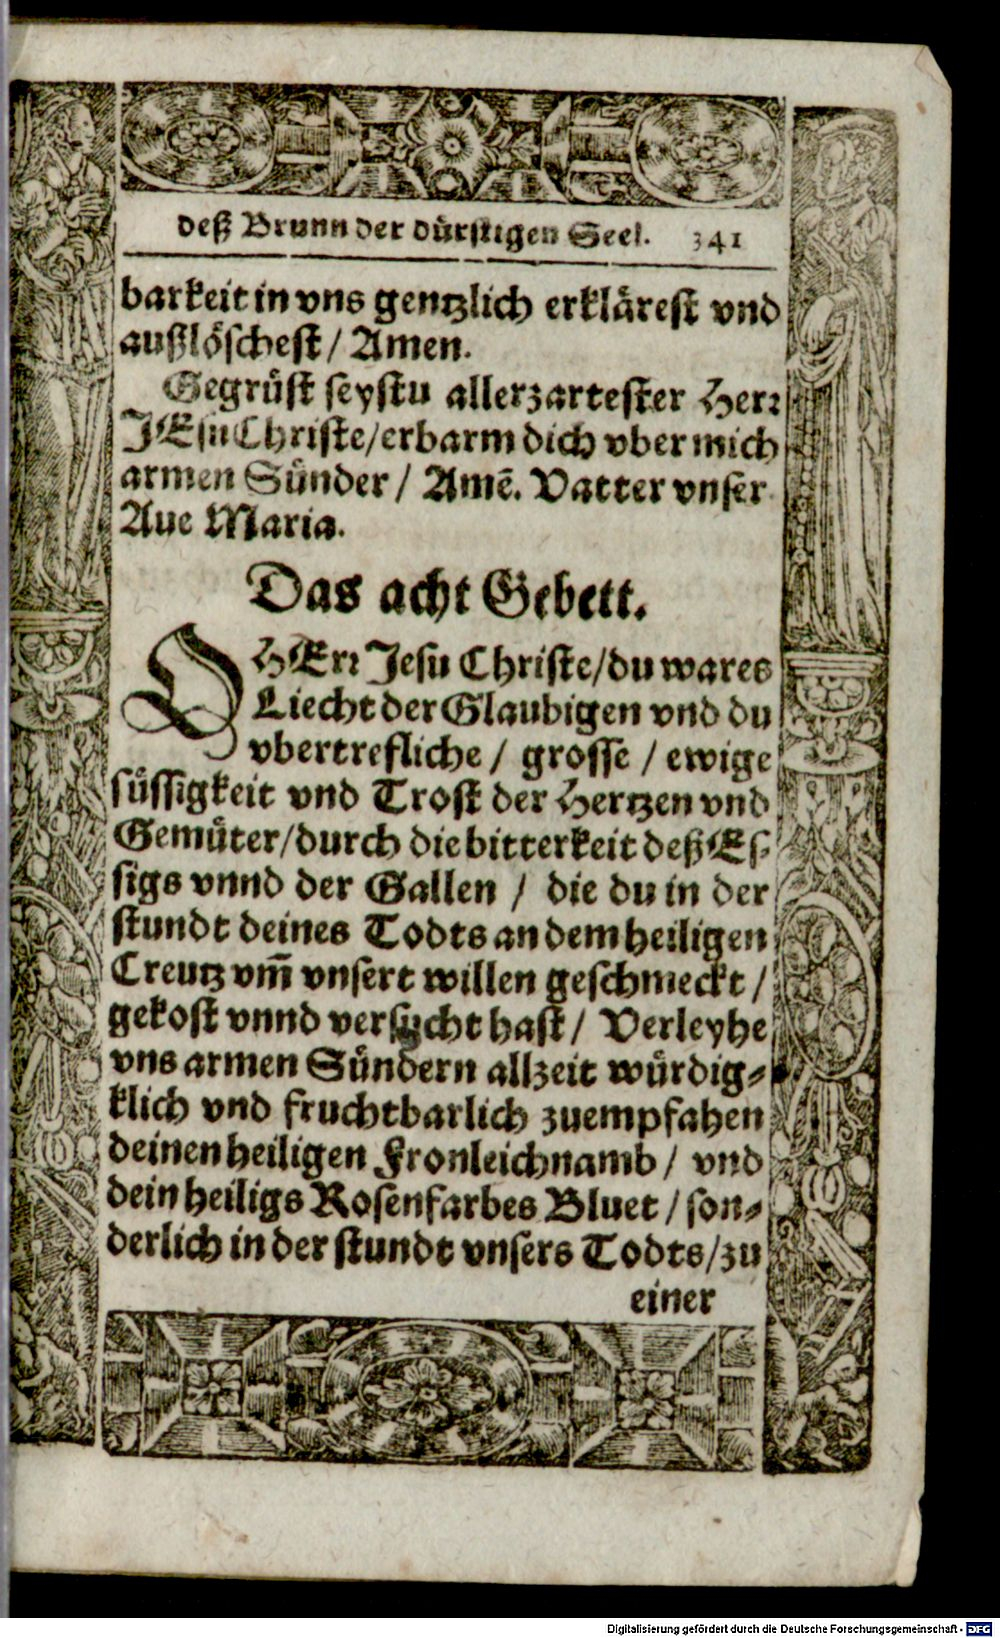 deß Brunn der dürstigen Seel. 341
barkeit in vns gentzlich erklärest vnd
außlöschest / Amen.
Gegrüst seystu allerzartester Herr
JEsu Christe/erbarm dich vber mich
armen Sünder / Amē. Vatter vnser
Aue Maria.
Das acht Gebett.
O HErr Jesu Christe/du wares
Liecht der Glaubigen vnd du
vbertrefliche / grosse / ewige
süssigkeit vnd Trost der Hertzen vnd
Gemüter/durch die bitterkeit deß Es-
sigs vnnd der Gallen / die du in der
stundt deines Todts an dem heiligen
Creutz vm̃ vnsert willen geschmeckt /
gekost vnnd versucht hast / Verleyhe
vns armen Sündern allzeit würdig-
klich vnd fruchtbarlich zuempfahen
deinen heiligen Fronleichnamb / vnd
dein heiligs Rosenfarbes Bluet / son-
derlich in der stundt vnsers Todts/zu
einer
Digitalisierung gefördert durch die Deutsche Forschungsgemeinschaft - DFG